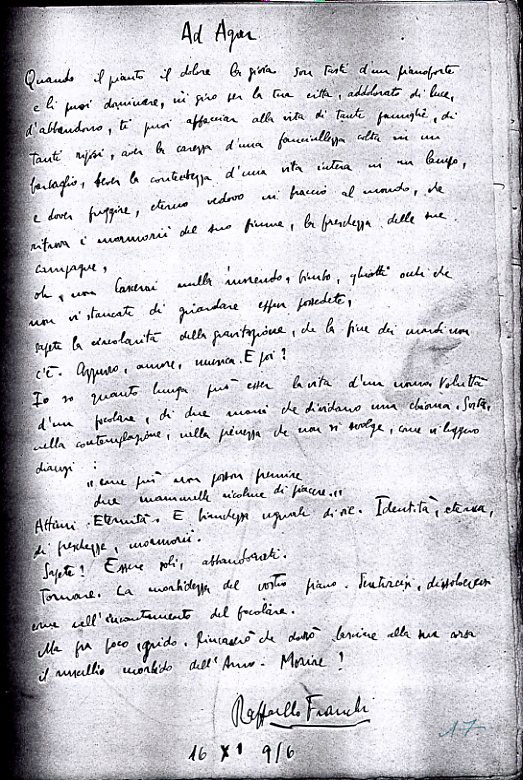 Ad Agar
Quando il pianto il dolore la gioia son tasti d'un pianoforte
e li puoi dominare, in giro per la tua città, addolorato di luce,
d'abbandono, ti puoi affacciar alla vita di tante famiglie, di
tanti riposi, aver la carezza d'una fanciullezza colta in un
barbaglio, aver la contentezza d'una vita intera in un lampo,
e dover fuggire, eterno vedovo in faccia al mondo, che
ritrova i mormorii del suo fiume, la freschezza delle sue
campagne,
oh, non lascerai nulla morendo, bimbo, ghiotti occhi che
non vi stancate di guardare esser possedete,
sapete la circolarità della gravitazione, che la fine dei mondi non
c'è. Azzurro, amore, musica. E poi?
Io so quanto lunga può esser la vita d'un uomo. Voluttà
d'un focolare, di due mani che dividano una chioma. Sosta,
nella contemplazione, nella pienezza che non si svolge, come vi leggevo
dianzi :
"come può non potersi premere
due mammelle ricolme di piacere."
Attimi. Eternità. E bianchezza uguale di sé. Identità, eterna,
di freschezze, mormorii.
Sapete! Essere soli, abbandonati.
Tornare. La morbidezza del vostro piano. Sentircisi, dissolvercisi
come nell'incantamento del focolare.
Ma fra poco, grido. Rincaserò che dovrò lasciare alla sua
il ruscellio morbido dell'Arno. Morire!
Raffaello Franchi
16 XI 916
17